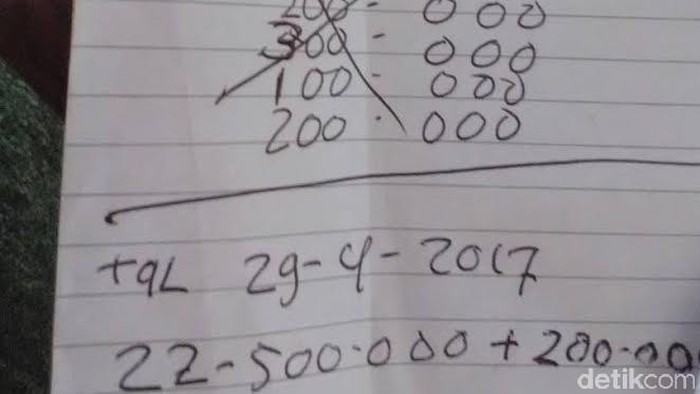 200- 000
300- 000
100- 000
200. 000
tgL 29-4-2017
22-500.000 + 200.00
detikcom